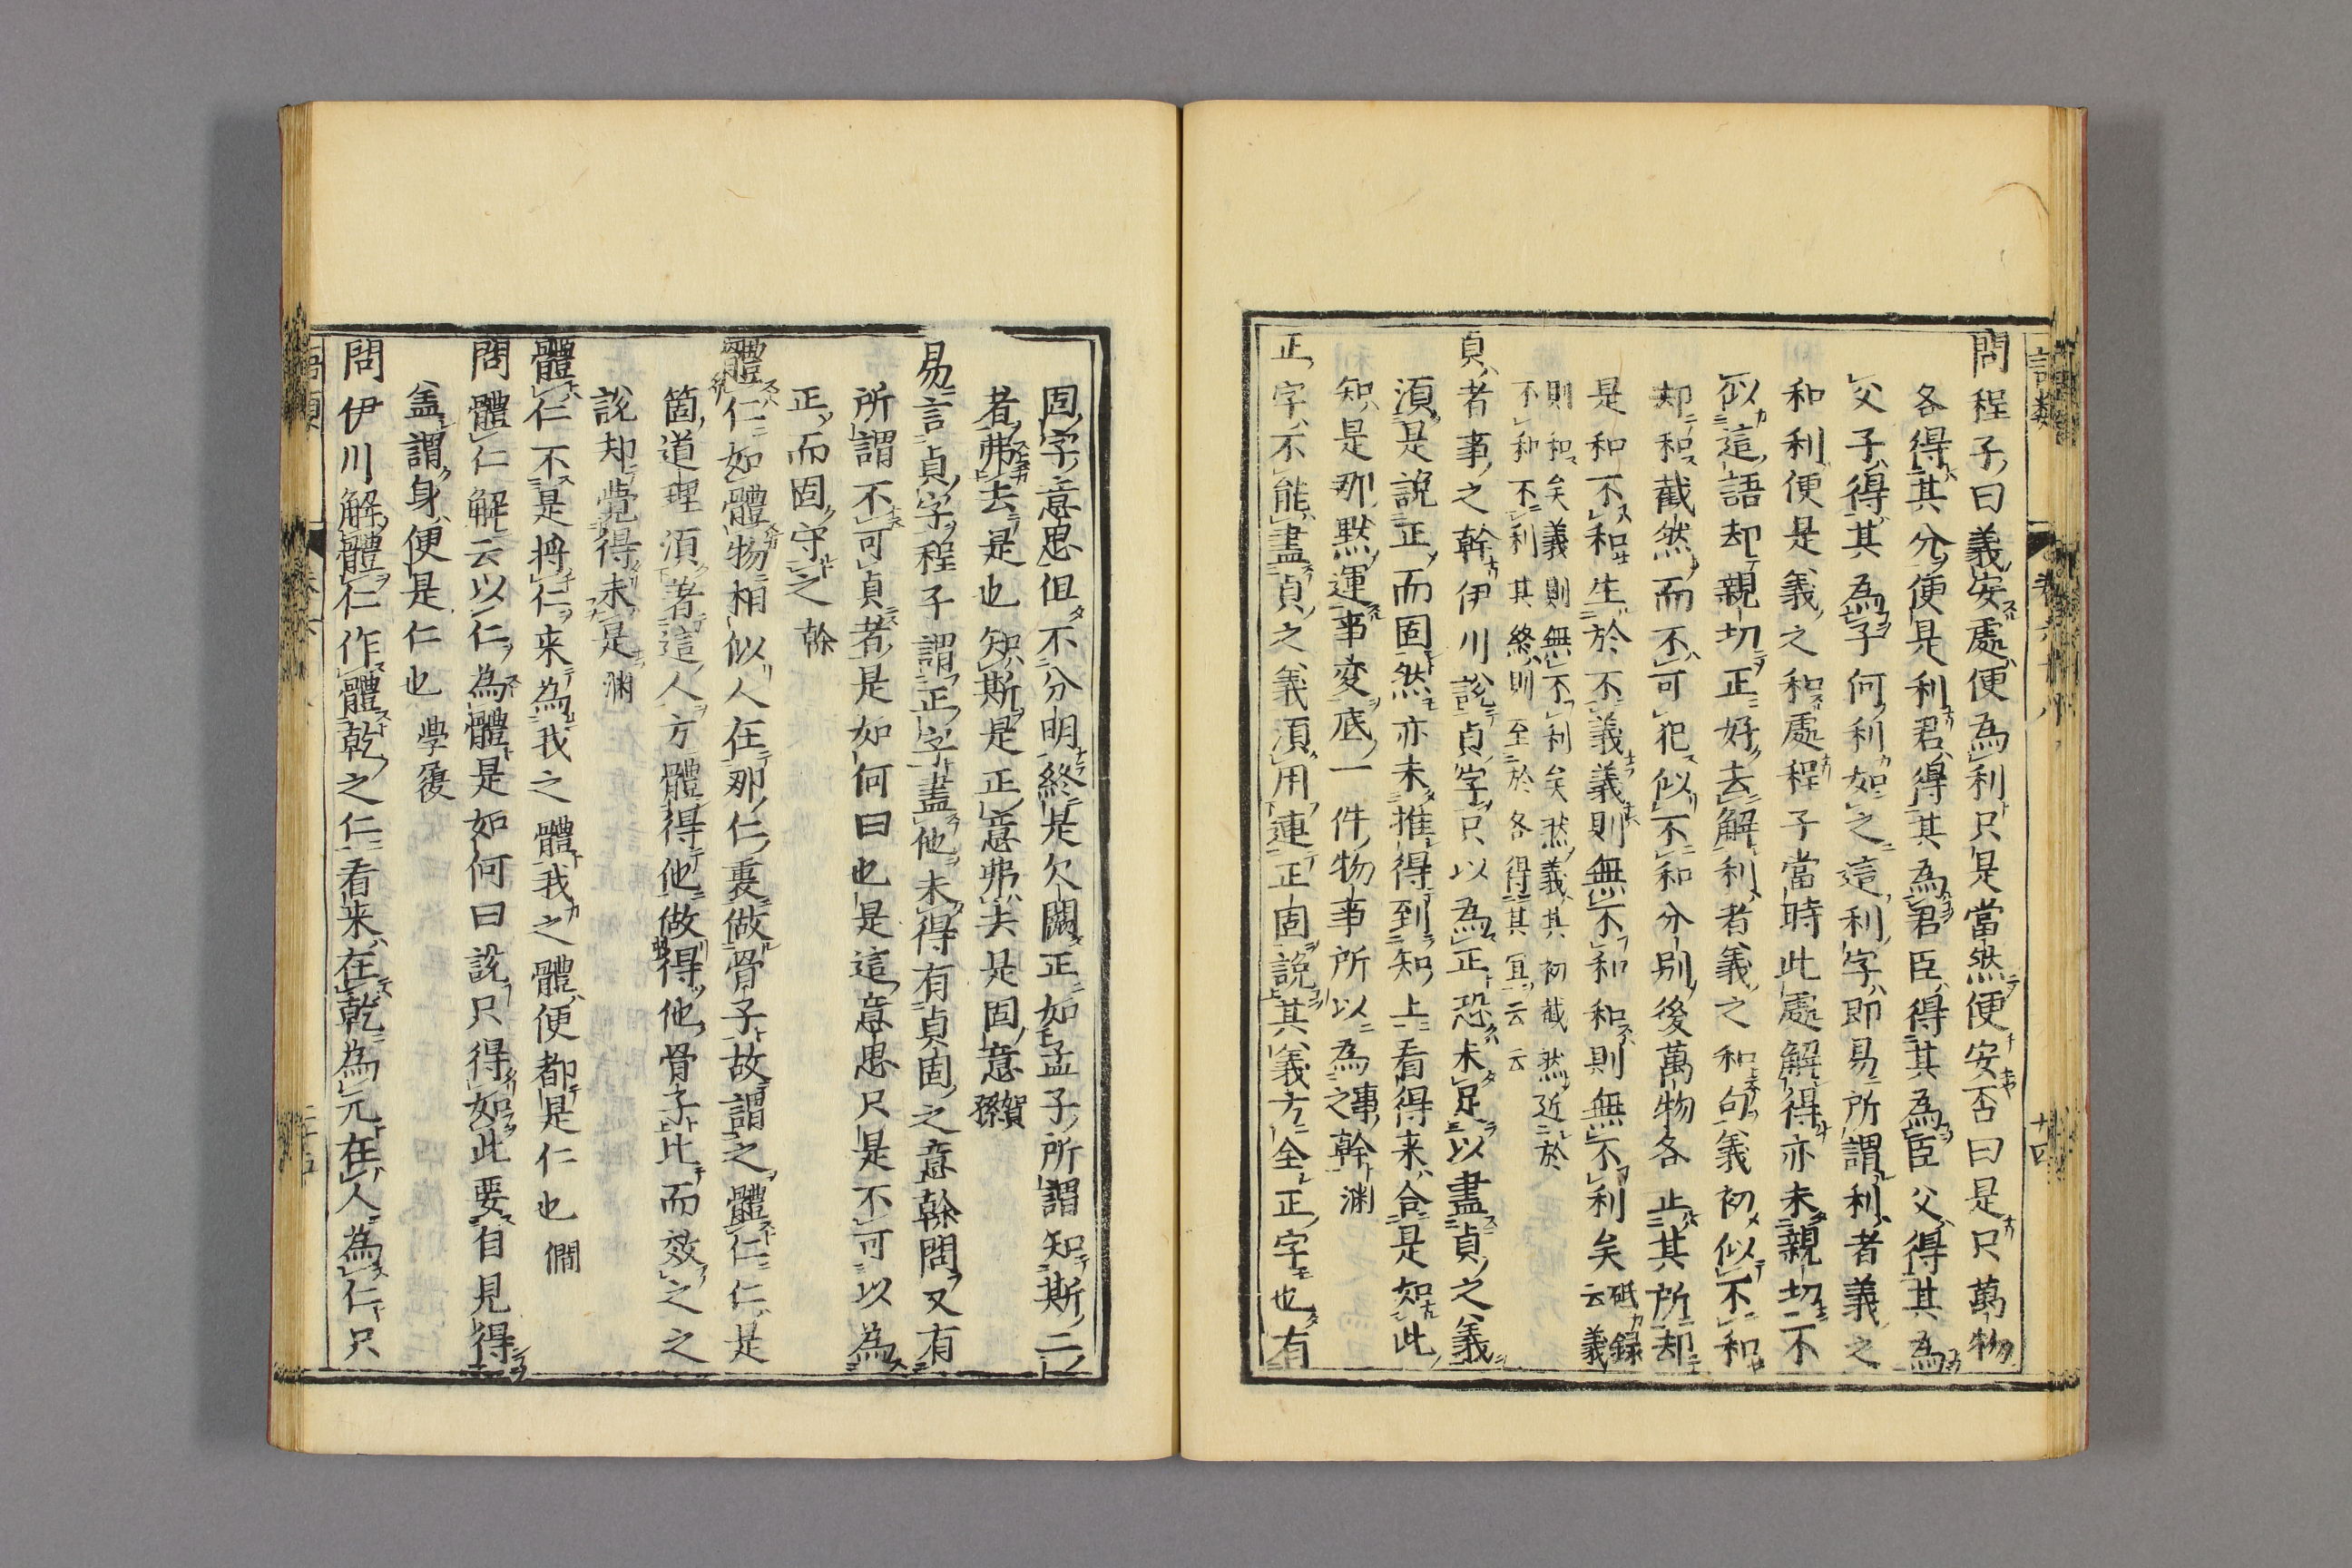 問程子曰義安處便為利只是當然便安否曰是只萬物
各得其分便是利君得其為君臣得其為臣父得其為
父子得其為子何利如之這利字即易所謂利者義之
和利便是義之和處程子當時此處解得亦未親切不
似這語却親切正好去解利者義之和句義初似不和
却和截然而不可犯似不和分別後萬物各止其所却
是和不和生於不義義則無不和和則無不利矣砥録云義
則和矣義則無不利矣然義其初截然近於
不和不利其終則至於各得其宜云云
貞者事之幹伊川說貞字只以為正恐未足以盡貞之義
須是說正而固然亦未推得到知上看得来合是知此
知是那默運事変底一件物事所以為事之幹淵
正字不能盡貞之義須用連正固說其義方全正字也有
固字意思但不分明終是欠闕正如孟子所謂知斯二
者弗去是也知斯是正意弗去是固意賀孫
易言貞字程子謂正字盡他未得有貞固之意榦問又有
所謂不可貞者是如何曰也是這意思只是不可以為
正而固守之榦
體仁如體物相似人在那仁裏做骨子故謂之體仁仁是
箇道理須著這人方體得他做得他骨子比而效之之
說却覺得未是淵
體仁不是將仁来為我之體我之體便都是仁也僩
問體仁解云以仁為體是如何曰說只得如此要自見得
盖謂身便是仁也學履
問伊川解體仁作體乾之仁看来在乾為元在人為仁只